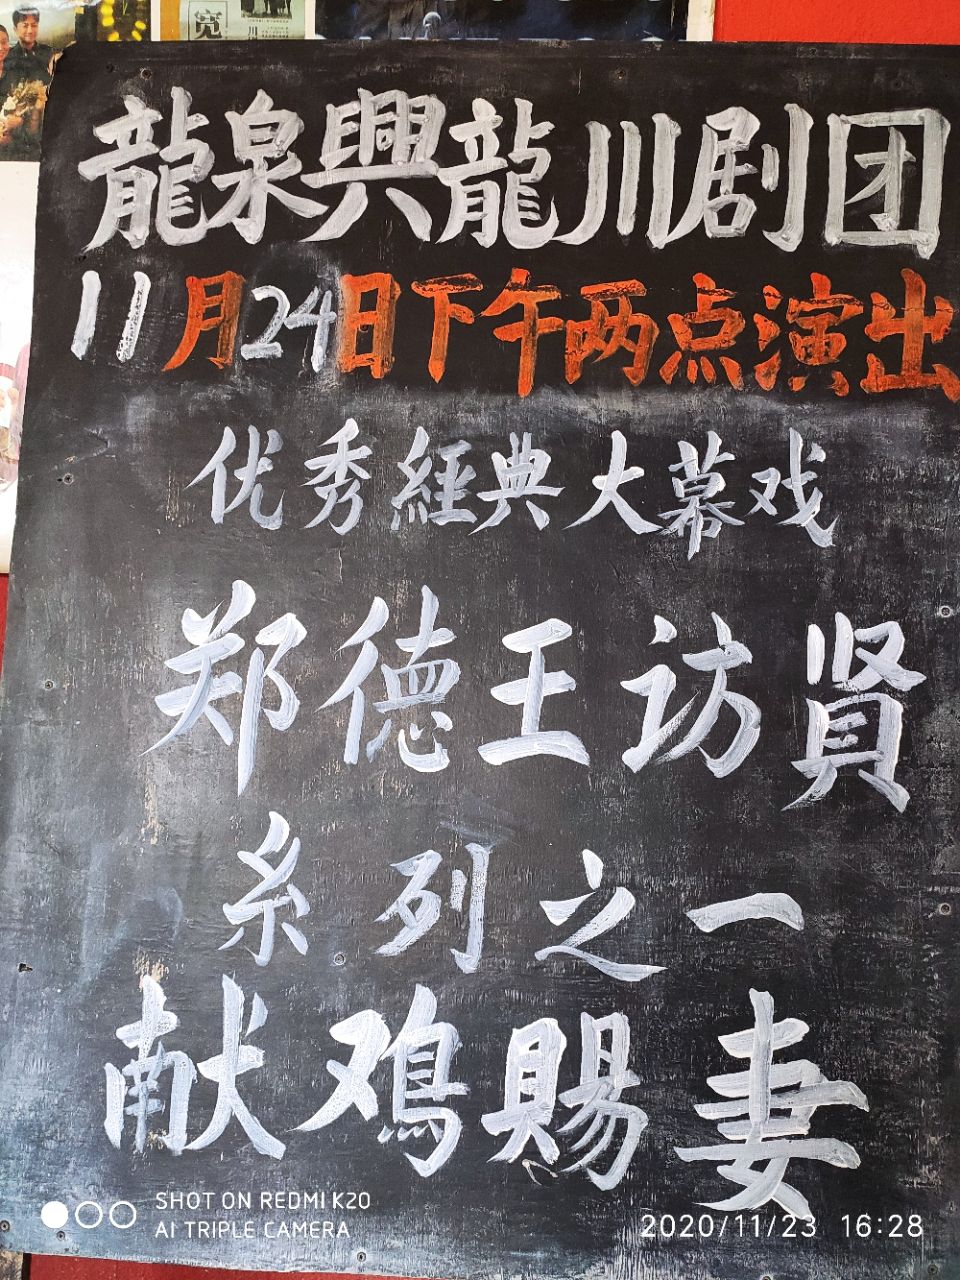 宽
龍泉興龍川剧团
11月24日下午两点演出
优秀經典大幕戏
郑德王访賢
系列之一
献鸡賜妻
SHOT ON REDMI K20
AI TRIPLE CAMERA
2020/11/23 16:28